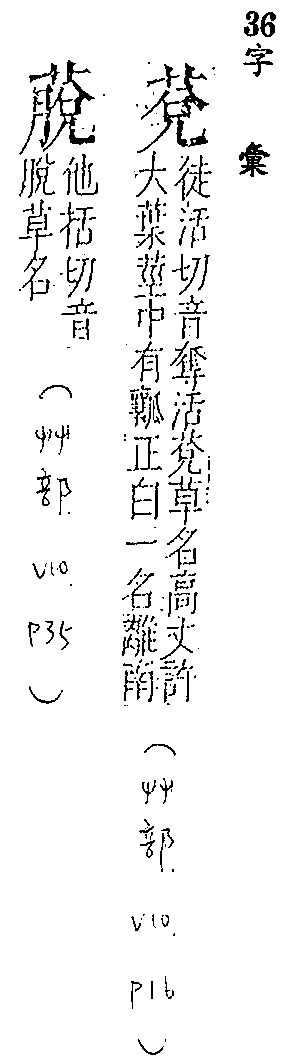 36字彙
莌 徒活切音奪活莌草名高丈許
大葉莖中有瓤正白一名離南
(艸部 V10. P16)
蛻 他括切音
脫草名
(艸部 V10. P35)